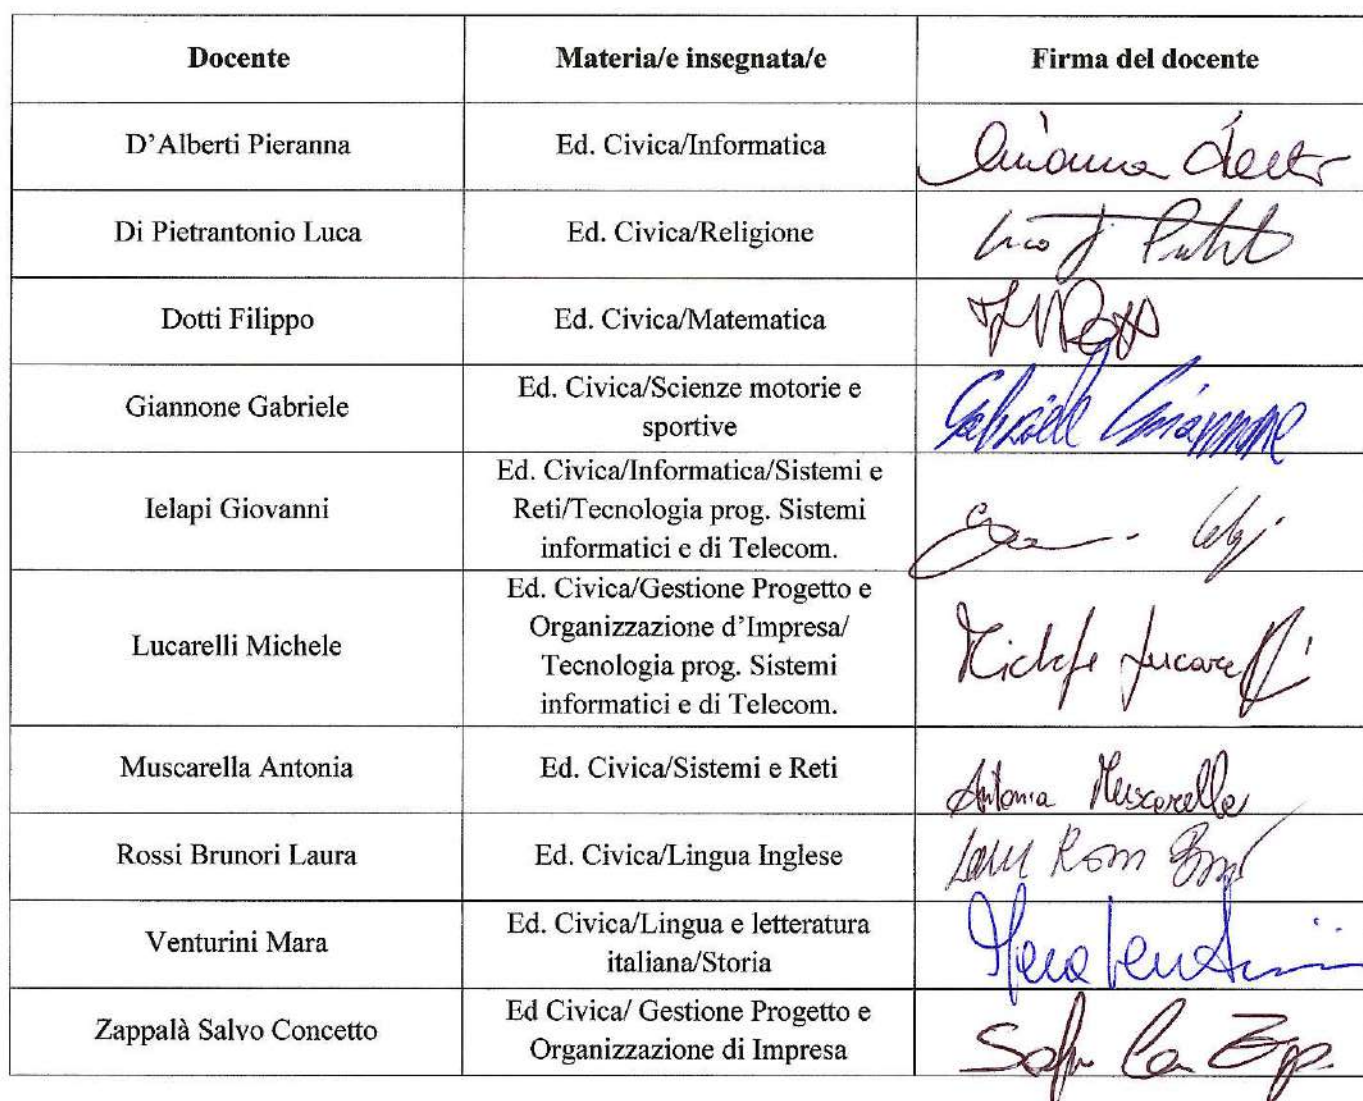 Docente Materia/e insegnata/e Firma del docente
D'Alberti Pieranna Ed. Civica/Informatica
Di Pietrantonio Luca Ed. Civica/Religione
Dotti Filippo Ed. Civica/Matematica
Giannone Gabriele Ed. Civica/Scienze motorie e
sportive Gabriele Giannone
Ielapi Giovanni Ed. Civica/Informatica/Sistemi e
Reti/Tecnologia prog. Sistemi
informatici e di Telecom.
Lucarelli Michele Ed. Civica/Gestione Progetto e
Organizzazione d'Impresa/
Tecnologia prog. Sistemi
informatici e di Telecom. Michele Lucarelli
Muscarella Antonia Ed. Civica/Sistemi e Reti Antonia Muscarella
Rossi Brunori Laura Ed. Civica/Lingua Inglese
Venturini Mara Ed. Civica/Lingua e letteratura
italiana/Storia Mara Venturini
Zappalà Salvo Concetto Ed Civica/ Gestione Progetto e
Organizzazione di Impresa